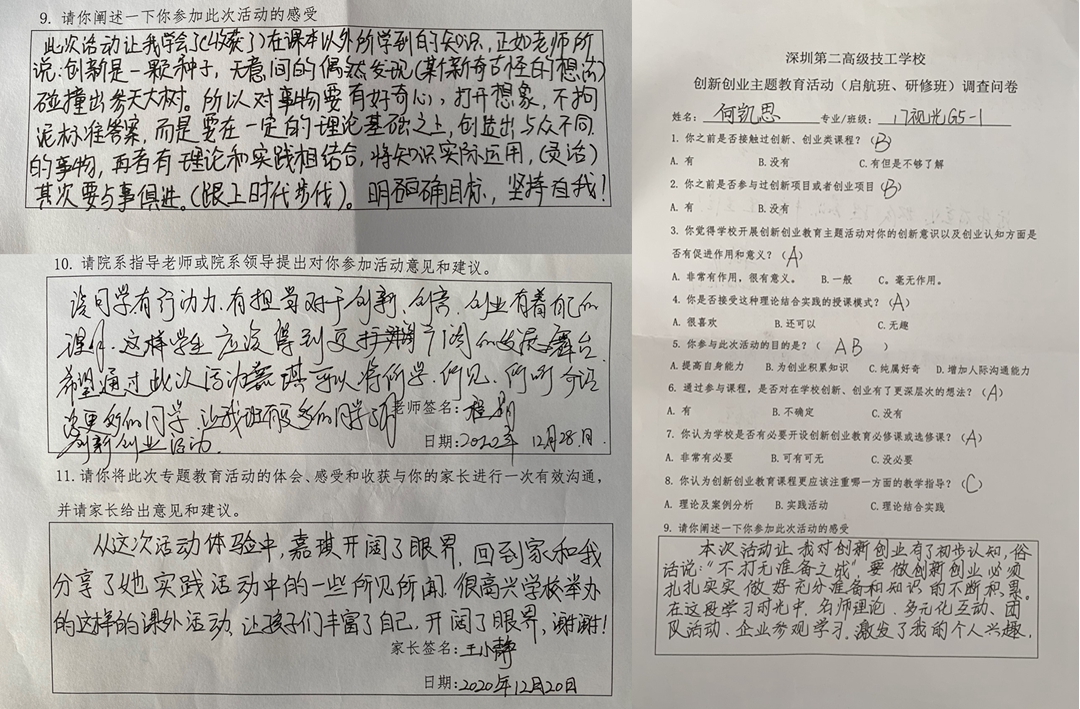 9. 请你阐述一下你参加此次活动的感受
此次活动让我学会了(收获了)在课本以外所学到的知识,正如老师所
说:创新是一颗种子,无意间的偶然发现(某新奇古怪的想法)
碰撞出参天大树。所以对事物要有好奇心,打开想象,不拘
泥标准答案,而是要在一定的理论基础之上,创造出与众不同
的事物,再者有理论和实践相结合,将知识实际运用,(灵活)
其次要与事俱进。(跟上时代步伐)。明确目标,坚持自我!
10. 请院系指导老师或院系领导提出对你参加活动意见和建议。
该同学有行动力,有担当对于创新、创意、创业有着自己的
理解,这样学生应该得到更广阔的发展舞台
希望通过此次活动嘉琪可以将所学、所见、所听介绍
给更多的同学,让我班有更多的同学了解
创新创业活动.
老师签名:
日期:2022年 12月28.日.
11. 请你将此次专题教育活动的体会、感受和收获与你的家长进行一次有效沟通,
并请家长给出意见和建议。
从这次活动体验中,嘉琪开阔了眼界,回到家和我
分享了她实践活动中的一些所见所闻.很高兴学校举办
的这样的课外活动,让孩子们丰富了自己,开阔了眼界,谢谢!
家长签名:王小静
日期:2020年12月20日
深圳第二高级技工学校
创新创业主题教育活动(启航班、研修班)调查问卷
姓名: 何凯思 专业/班级: 17视光G5-1
1. 你之前是否接触过创新、创业类课程?(B)
A. 有 B.没有 C.有但是不够了解
2. 你之前是否参与过创新项目或者创业项目(B)
A. 有 B.没有
3. 你觉得学校开展创新创业教育主题活动对你的创新意识以及创业认知方面是
否有促进作用和意义?(A)
A. 非常有作用,很有意义。 B.一般 C。毫无作用。
4. 你是否接受这种理论结合实践的授课模式?(A)
A. 很喜欢 B.还可以 C.无趣
5. 你参与此次活动的目的是?( AB )
A.提高自身能力 B.为创业积累知识 C.纯属好奇 D.增加人际沟通能力
6. 通过参与课程,是否对在学校创新、创业有了更深层次的想法?(A)
A. 有 B.不确定 C.没有
7. 你认为学校是否有必要开设创新创业教育必修课或选修课?(A)
A. 非常有必要 B.可有可无 C.没必要
8. 你认为创新创业教育课程更应该注重哪一方面的教学指导?(C)
A. 理论及案例分析 B.实践活动 C.理论结合实践
9. 请你阐述一下你参加此次活动的感受
本次活动让我对创新创业有了初步认知,俗
话说:“不打无准备之战”要做创新创业必须
扎扎实实做好充分准备和知识的不断积累。
在这段学习时光中,名师理论、多元化互动、团
队活动、企业参观学习,激发了我的个人兴趣,